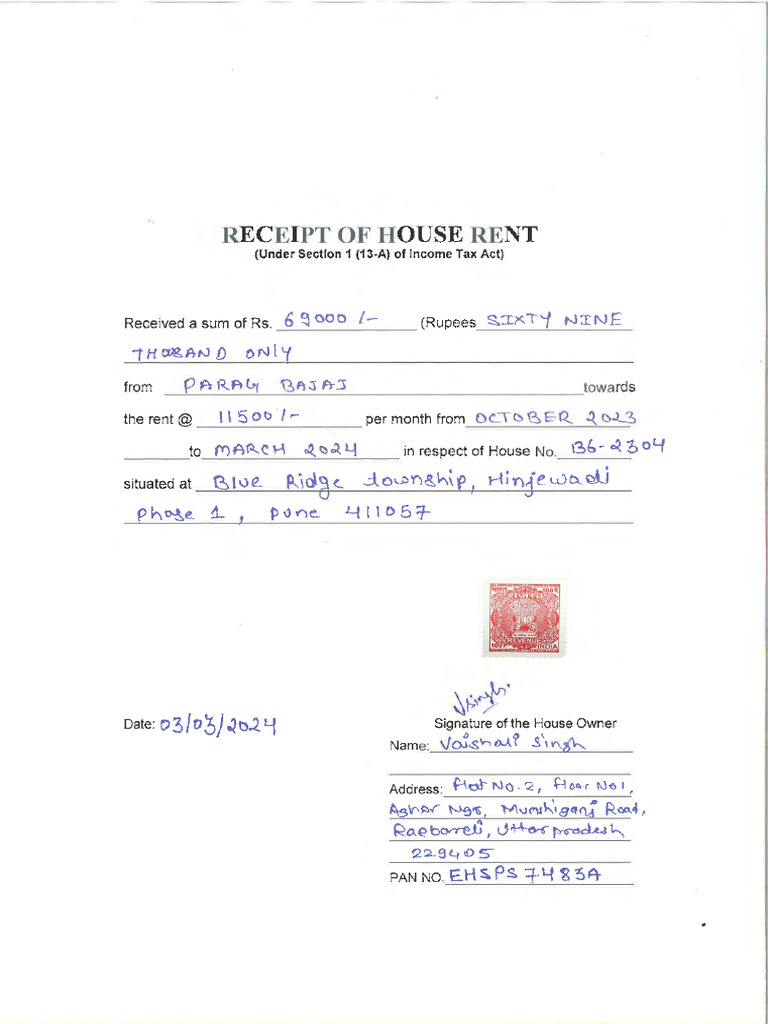 RECEIPT OF HOUSE RENT
(Under Section 1 (13-A) of Income Tax Act)
Received a sum of Rs. 69000/- (Rupees SIXTY NINE
THOUSAND ONLY
from PARAG BAJAJ towards
the rent @ 11500/- per month from OCTOBER 2023
to MARCH 2024 in respect of House No. B6-2304
situated at Blue Ridge township, Hinjewadi
Phase 1, Pune 411057
REVENUE
INDIA
Vsingh.
Date: 03/03/2024 Signature of the House Owner
Name: Vaishali Singh
Address: flat No.2, floor No1,
Ngr, Munshiganj Road,
Raebareli, Uttar pradesh
229405
PAN NO. EHSPS7483A